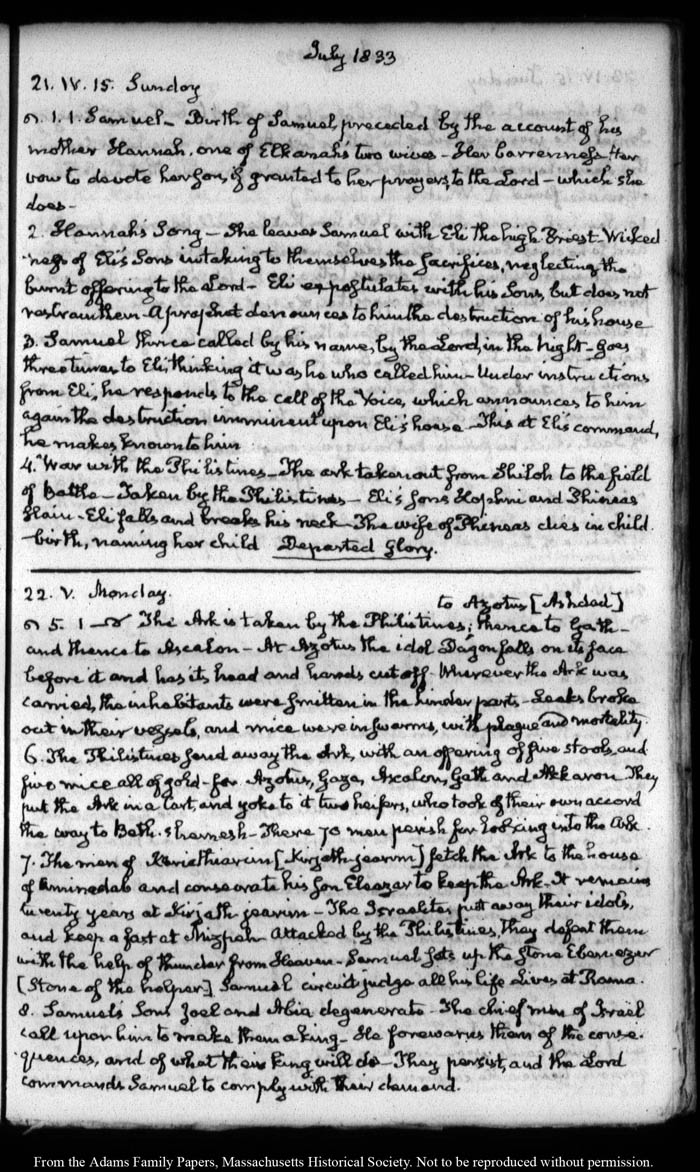 July 1833
21. IV. 15. Sunday
1. 1. Samuel - Birth of Samuel, preceded by the account of his
mother Hannah, one of Elkanah's two wives - Her barrenness - Her
vow to devote her son, if granted to her prayers, to the Lord - which she
does -
2. Hannah's Song - She leaves Samuel with Eli the high Priest - Wicked
ness of Eli's Sons in taking to themselves the sacrifices, neglecting the
burnt offering to the Lord - Eli expostulates with his Sons, but does not
restrain them - A prophet denounces to him the destruction of his house
3. Samuel thrice called by his name, by the Lord, in the night - goes
three times to Eli, thinking it was he who called him - Under instructions
from Eli, he responds to the call of the Voice, which announces to him
again the destruction imminent upon Eli's house - This at Eli's command,
he makes known to him
4. War with the Philistines - The ark taken out from Shiloh to the field
of Battle - Taken by the Philistines - Eli's sons Hophni and Phineas
slain - Eli falls and breaks his neck - The wife of Phineas dies in child
birth, naming her child Departed Glory.
22. V. Monday.
to Azotus [Ashdod]
5. 1 - The Ark is taken by the Philistines; thence to Gath -
and thence to Ascalon - At Azotus the idol Dagon falls on its face
before it and has its head and hands cut off - Wherever the Ark was
carried, the inhabitants were smitten in the hinder parts - Leaks broke
out in their vessels, and mice were in swarms, with plague and mortality.
6. The Philistines send away the Ark, with an offering of five stools, and
five mice all of gold - for Azotus, Gaza, Ascalon, Gath and Akkaron They
put the Ark in a Cart, and yoke to it two heifers, who took of their own accord
the way to Beth-shemesh - There 70 men perish for looking into the Ark.
7. The men of Kariathiarim [Kirjath-jearim] fetch the Ark to the house
of Aminadab and consecrate his son Eleazar to keep the Ark. It remains
twenty years at Kirjath jearim - The Israelites put away their idols,
and keep a fast at Mizpah - Attacked by the Philistines, they defeat them
with the help of thunder from Heaven - Samuel sets up the stone Ebenezer
[Stone of the helper] Samuel circuit judge all his life Lives at Rama.
8. Samuel's Sons Joel and Abia degenerate - The chief men of Israel
call upon him to make them a king - He forewarns them of the conse-
quences, and of what their king will do - They persist, and the Lord
commands Samuel to comply with their demand.
From the Adams Family Papers, Massachusetts Historical Society. Not to be reproduced without permission.